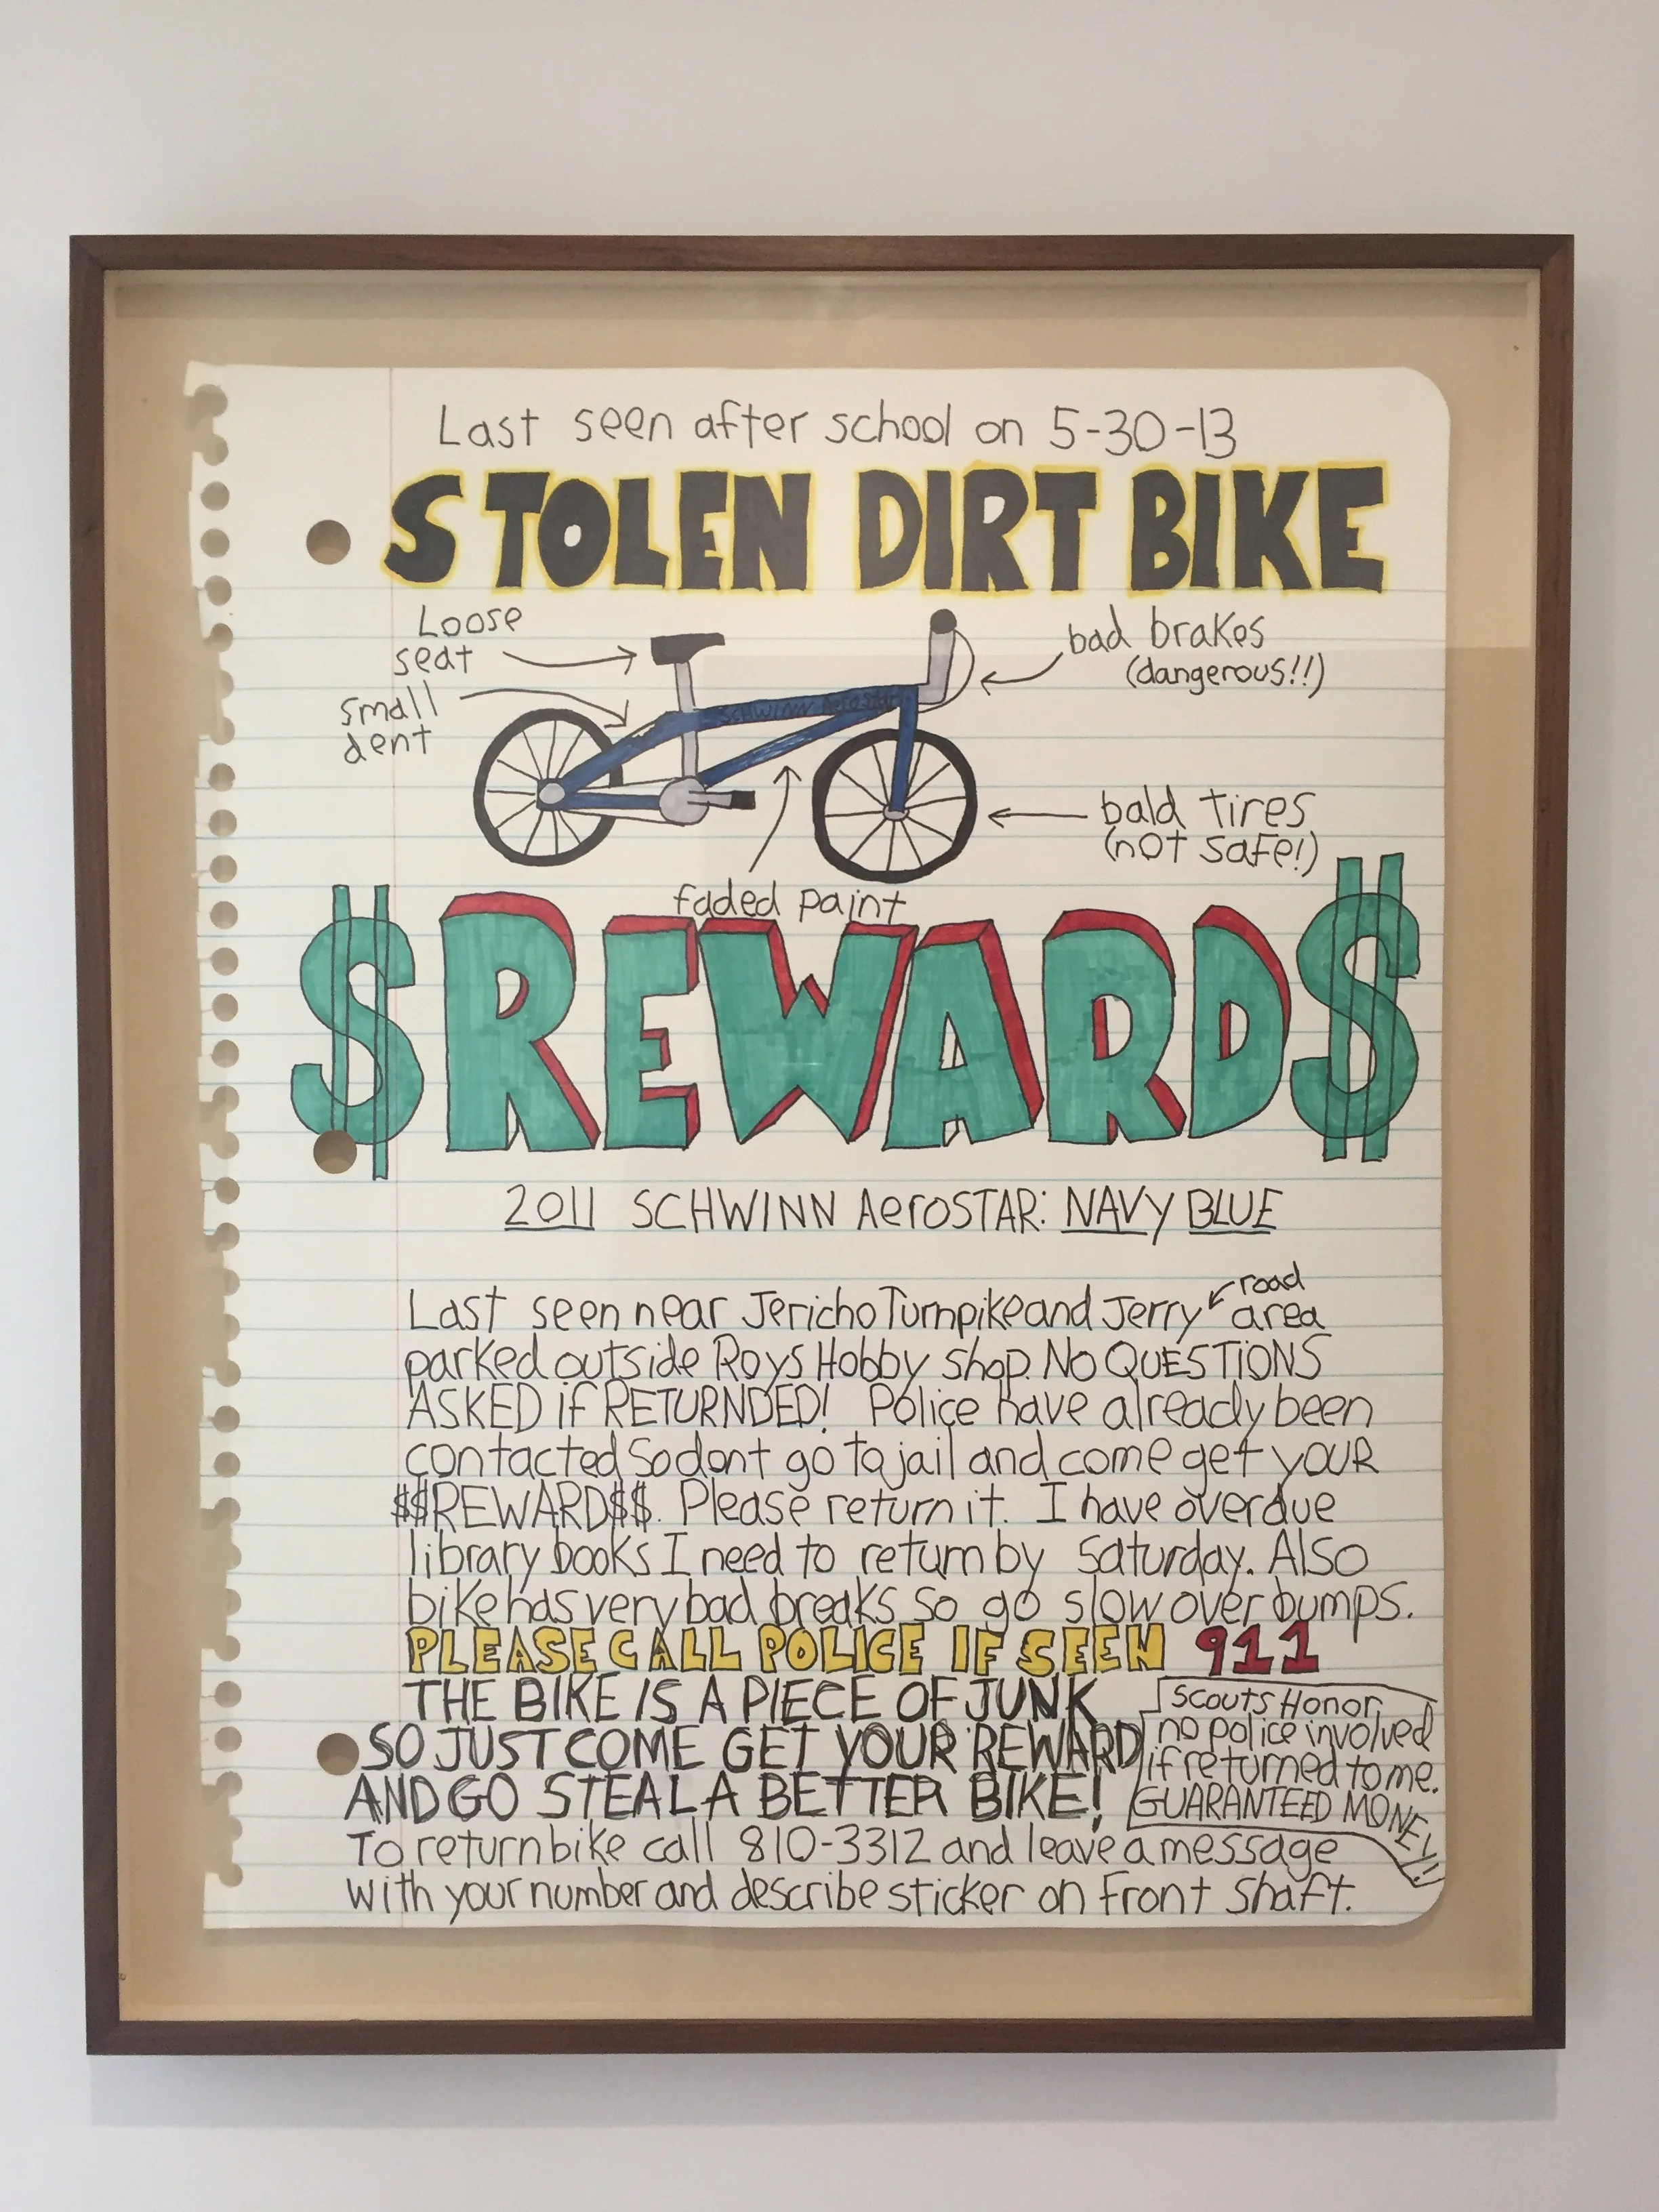 Last seen after school on 5-30-13
STOLEN DIRT BIKE
Loose
seat
small
dent
bad brakes
(dangerous!!)
SCHWINN Aerostar
bald tires
(not safe!)
faded paint
$REWARD$
2011 SCHWINN AeroSTAR: NAVY BLUE
road
Last seen near Jericho Turnpike and Jerry area
parked outside Roys Hobby shop. NO QUESTIONS
ASKED iF RETURNDED! Police have already been
contacted so dont go to jail and come get YOUR
$$REWARD$$. Please return it. I have overdue
library books I need to return by Saturday. Also
bike has very bad breaks so go slow over bumps.
PLEASE CALL POLICE IF SEEN 911
THE BIKE IS A PIECE OF JUNK
SO JUST COME GET YOUR REWARD
AND GO STEAL A BETTER BIKE!
Scouts Honor,
no police involved
if returned to me.
GUARANTEED MONEY!!
To return bike call 810-3312 and leave a message
with your number and describe sticker on front shaft.